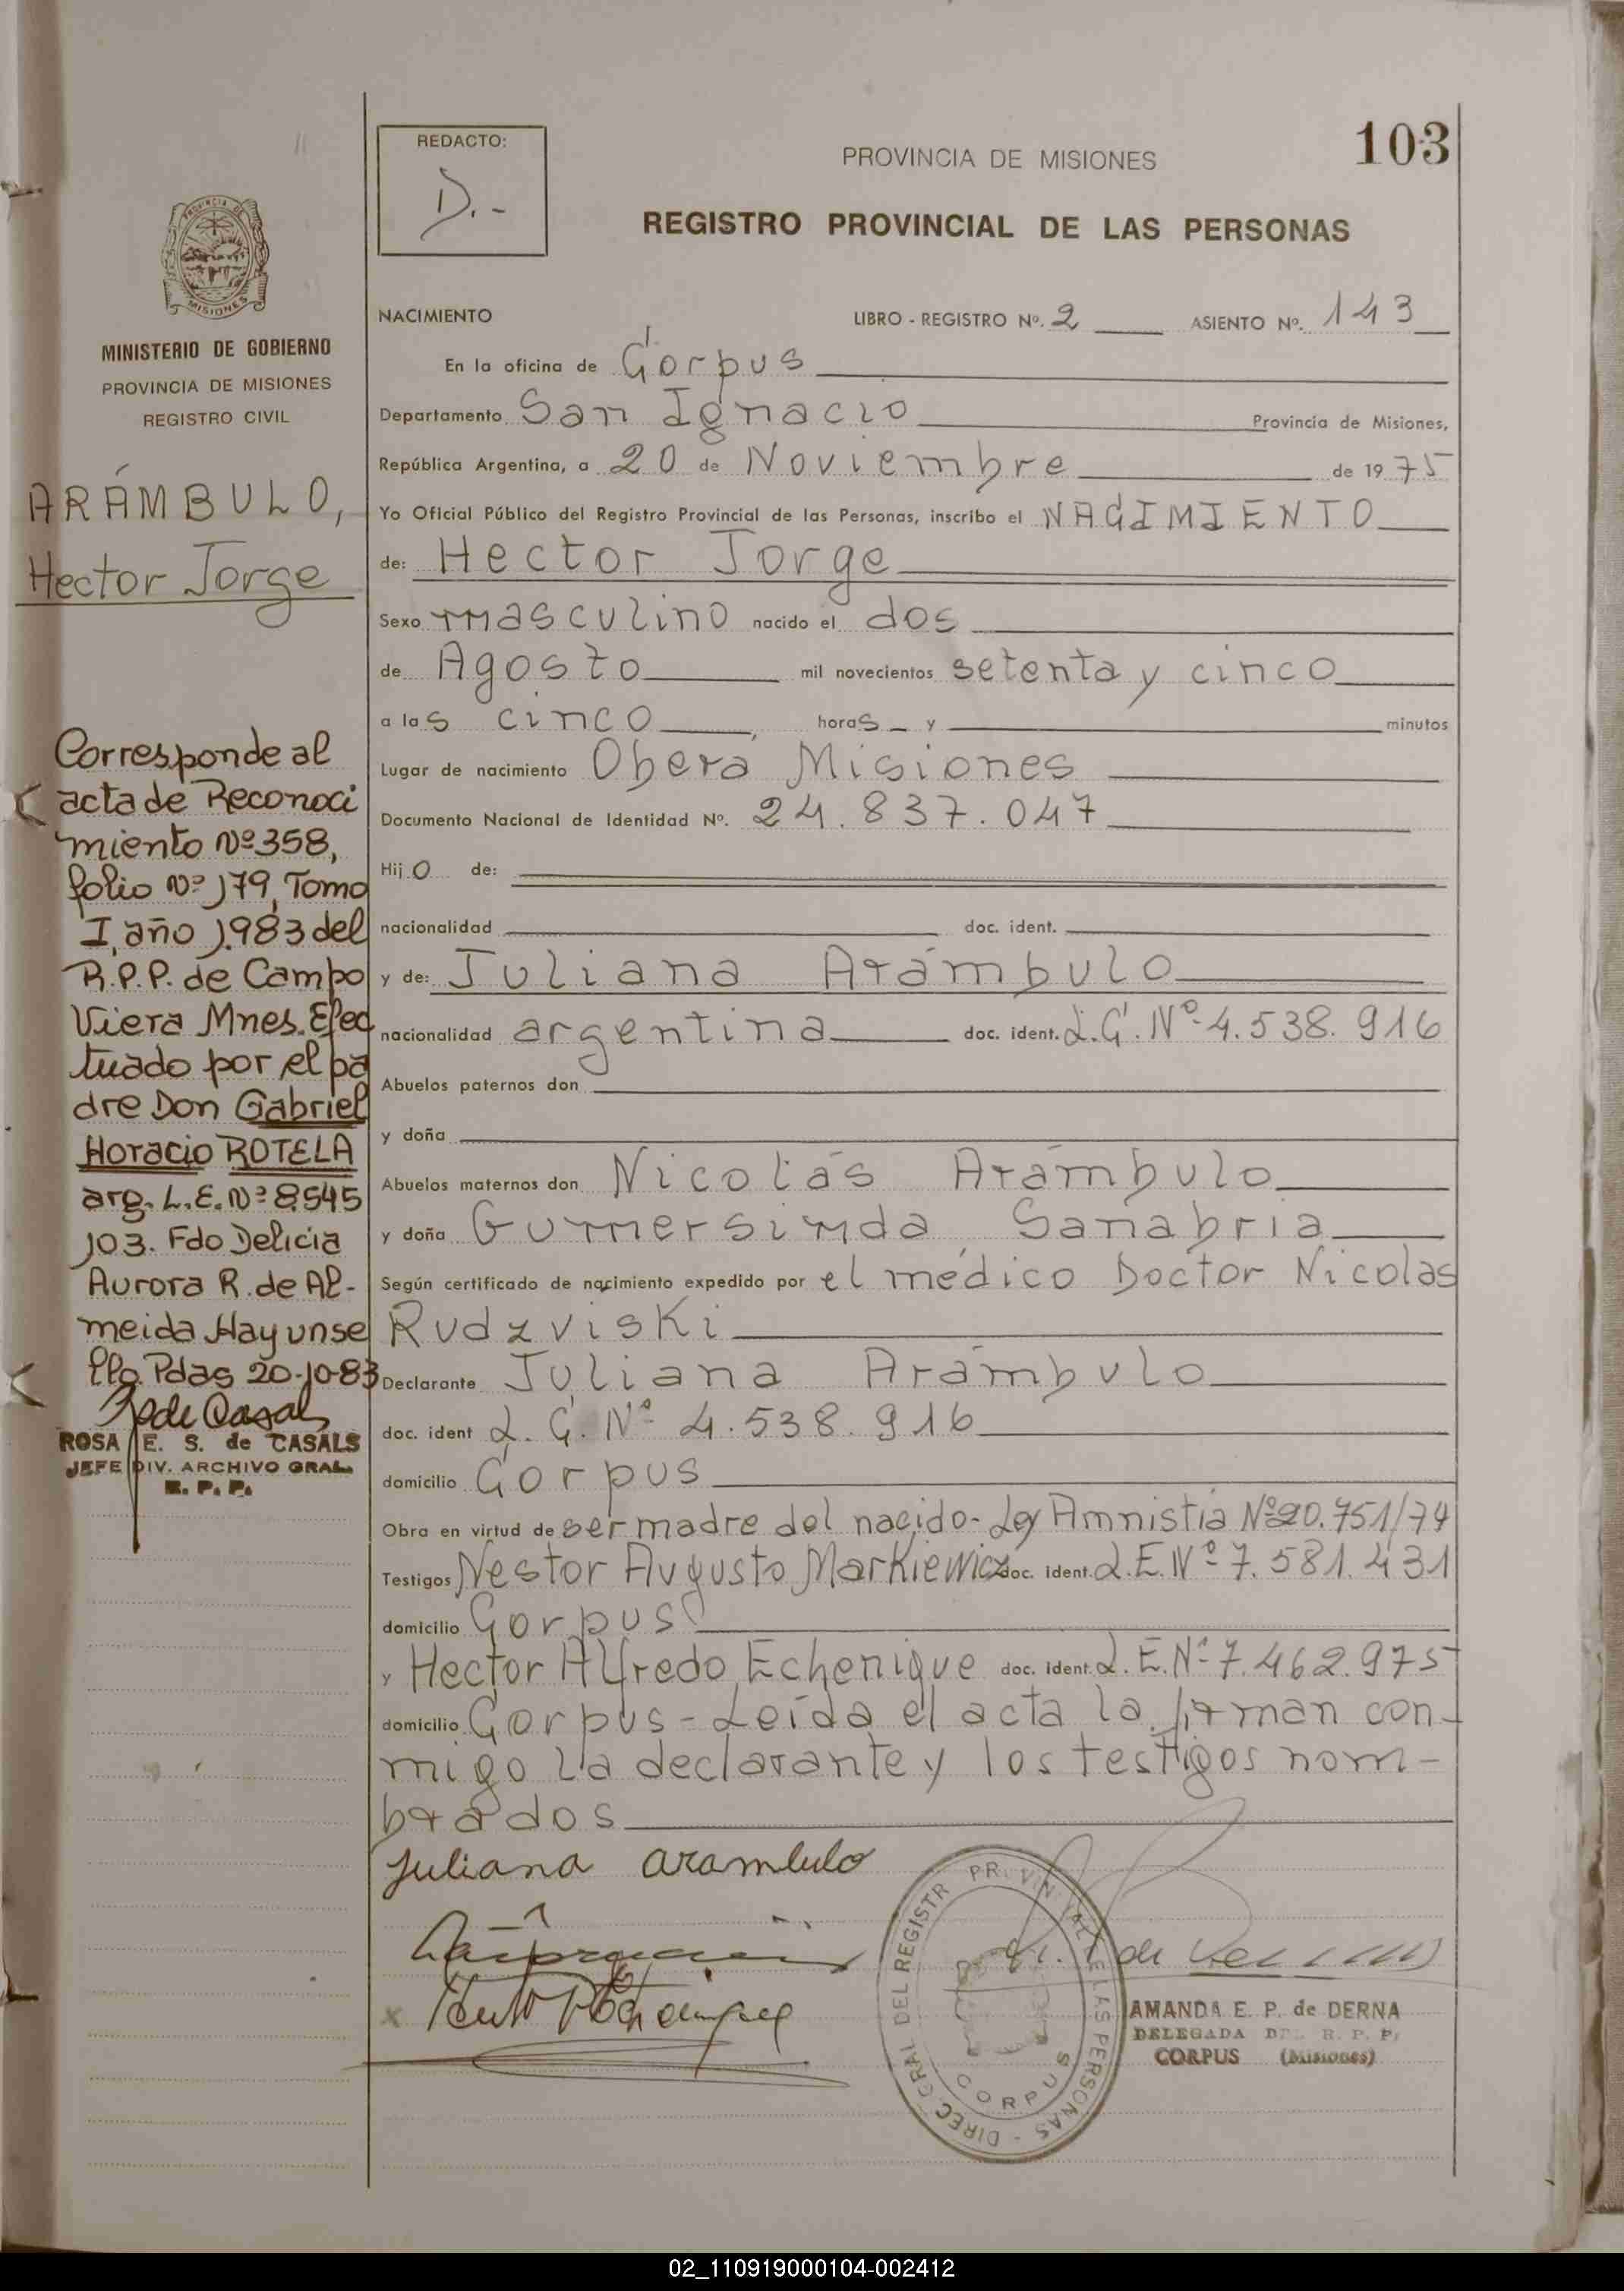 103
REDACTO:
D.-
PROVINCIA DE MISIONES
REGISTRO PROVINCIAL DE LAS PERSONAS
PROVINCIA DE
MISIONES
MINISTERIO DE GOBIERNO
PROVINCIA DE MISIONES
REGISTRO CIVIL
ARÁMBULO,
Hector Jorge
Corresponde al
acta de Reconoci
miento Nº 358,
folio Nº 179, Tomo
I, año 1.983 del
R.P.P. de Campo
Viera Mnes. Efec
tuado por el pa
dre Don Gabriel
Horacio ROTELA
arg. L.E. Nº 8.545
103. Fdo Delicia
Aurora R. de Al-
meida Hay un se
llo. Pdas 20-10-83
ROSA E. S. de CASALS
JEFE DIV. ARCHIVO GRAL.
R. P. P.
NACIMIENTO LIBRO - REGISTRO Nº. 2 ASIENTO Nº. 143
En la oficina de Corpus
Departamento San Ignacio Provincia de Misiones,
República Argentina, a 20 de Noviembre de 1975
Yo Oficial Público del Registro Provincial de las Personas, inscribo el NACIMIENTO
de: Hector Jorge
Sexo masculino nacido el dos
de Agosto mil novecientos setenta y cinco
a las cinco, horas y minutos
Lugar de nacimiento Obera Misiones
Documento Nacional de Identidad Nº. 24.837.047
Hijo de:
nacionalidad doc. ident.
y de: Juliana Arámbulo
nacionalidad argentina doc. ident. L.C. Nº 4.538.916
Abuelos paternos don
y doña
Abuelos maternos don Nicolás Arámbulo
y doña Gumersinda Sanabria
Según certificado de nacimiento expedido por el médico Doctor Nicolas
Rudzviski
Declarante Juliana Arámbulo
doc. ident L.C. Nº 4.538.916
domicilio Corpus
Obra en virtud de ser madre del nacido- Ley Amnistia Nº 20.751/74
Testigos Nestor Augusto Markiewicz doc. ident. L.E. Nº 7.581.431
domicilio Corpus
y Hector Alfredo Echenique doc. ident. L.E. Nº 7.462.975
domicilio Corpus - Leída el acta la firman con-
migo la declarante y los testigos nom-
brados
Juliana arambulo
DIREC. GRAL DEL REGISTR PROVINCIAL DE LAS PERSONAS -
CORPUS
AMANDA E. P. de DERNA
DELEGADA DEL R. P. P.
CORPUS (Misiones)
02_110919000104-002412